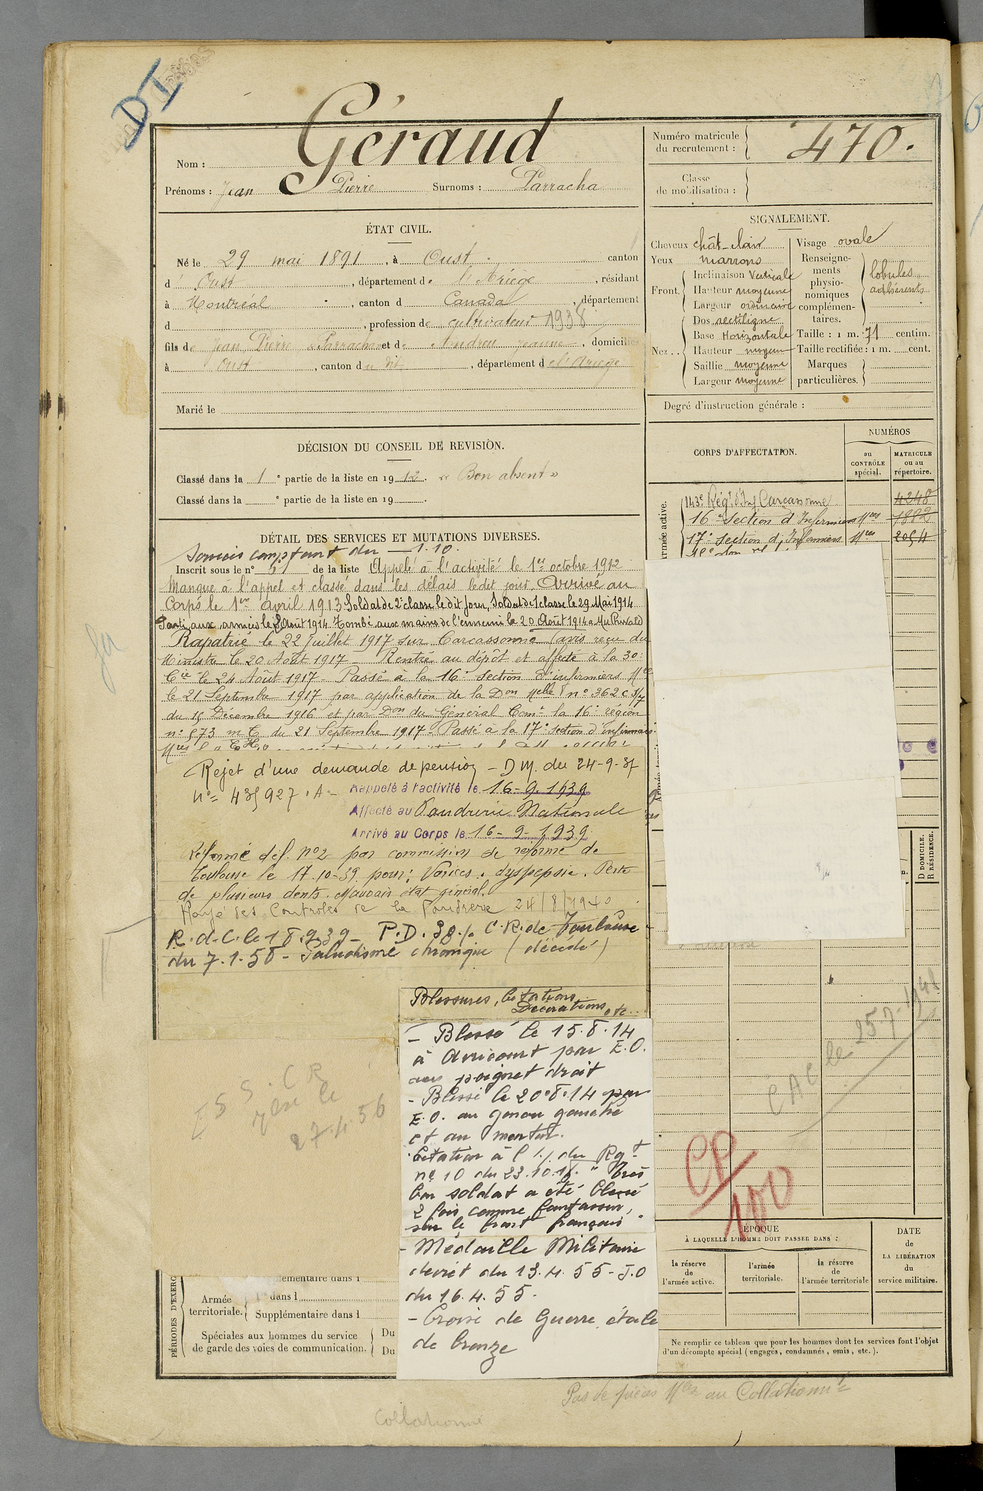 DI
Géraud
Nom :
Prénoms : Jean Pierre Surnoms : Parracha
Numéro matricule du recrutement : 470.
Classe de mobilisation :
ÉTAT CIVIL.
Né le 29 mai 1891, à Oust canton
d' Oust, département de l'Ariège, résidant
à Montréal, canton d Canada, département
d , profession de cultivateur 1938
fils de Jean Pierre Parracha et de Andreu Jeanne, domicilié
à Oust, canton du dit, département de l'Ariège
Marié le
SIGNALEMENT.
Cheveux chât. clair
Yeux marrons
Front. Inclinaison Verticale
Hauteur moyenne
Largeur ordinaire
Nez. Dos rectiligne
Base Horizontale
Hauteur moyenne
Saillie moyenne
Largeur moyenne
Visage ovale
Renseignements physionomiques complémentaires. lobules adhérents
Taille : 1 m. 71 centim.
Taille rectifiée : 1 m. cent.
Marques particulières.
Degré d'instruction générale :
DÉCISION DU CONSEIL DE REVISION.
Classé dans la 1e partie de la liste en 1912 « Bon absent »
Classé dans la e partie de la liste en 19
CORPS D'AFFECTATION.
NUMÉROS
au CONTRÔLE spécial.
MATRICULE ou au répertoire.
143e Régt d'Inf Carcassonne 4248
16e Section d'Infirmiers Mres 1882
17e Section d'Infirmiers Mres 2054
DÉTAIL DES SERVICES ET MUTATIONS DIVERSES.
Services comptant du 1.10.
Inscrit sous le n° de la liste Appelé à l'activité le 1er octobre 1912
Manque à l'appel et classé dans les délais ledit jour. Arrivé au
Corps le 1er avril 1913 Soldat de 2e classe, le dit jour, Soldat de 1e classe le 29 Mai 1914
Parti aux armées le 8 Août 1914. Tombé aux mains de l'ennemi le 20 Août 1914 à
Rapatrié le 22 juillet 1917 sur Carcassonne (avis reçu du
Ministre le 20 Août 1917 – Rentré au dépôt et affecté à la 30e
Cie le 24 Août 1917 – Passé à la 16e Section d'infirmiers Mres
le 21 Septembre 1917 par application de la Don Melle n° 362
du 15 Décembre 1916 et par Don du Général Comt la 16e région
n° 873 du 21 Septembre 1917. Passé à la 17e section d'infirmiers
Rejet d'une demande de pension – D M. du 24-9-31
N°= 435927. A –
Rappelé à l'activité le 16-9-1939
Affecté au Poudrerie Nationale
Arrivé au Corps le 16-9-1939
Réformé déf. n°2 par commission de réforme de
Toulouse le 17.10.39 pour : Varices. dyspepsie. Perte
de plusieurs dents. Mauvais état général.
Rayé des Contrôles de la Poudrerie 24/8/1940
P.D. 38 % C.R. de Toulouse
du 7.1.58 – Paludisme chronique (décédé)
Blessures, Citations,
Décorations, etc...
– Blessé le 15.8.14
à Avricourt par E.O.
au poignet droit
– Blessé le 20.8.14 par
E.O. au genou gauche
et au menton.
Citation à l' du Rgt
n° 10 du 23.10.18. " Très
bon soldat a été blessé
2 fois comme fantassin,
sur le front français "
– Médaille Militaire
décret du 13.4.55 – J.O
du 16.4.55.
– Croix de Guerre étoile
de bronze
27.4.56
CAC le 25.7.1941
CP/100
ÉPOQUE
À LAQUELLE L'HOMME DOIT PASSER DANS :
la réserve de l'armée active.
l'armée territoriale.
la réserve de l'armée territoriale
DATE de LA LIBÉRATION du service militaire.
Ne remplir ce tableau que pour les hommes dont les services font l'objet
d'un décompte spécial (engagés, condamnés, omis, etc.).
Armée territoriale. dans l
Supplémentaire dans l
Spéciales aux hommes du service Du
de garde des voies de communication. Du
D DOMICILE.
R RÉSIDENCE.
Pas de pièces Mres au Collationnt
Collationné